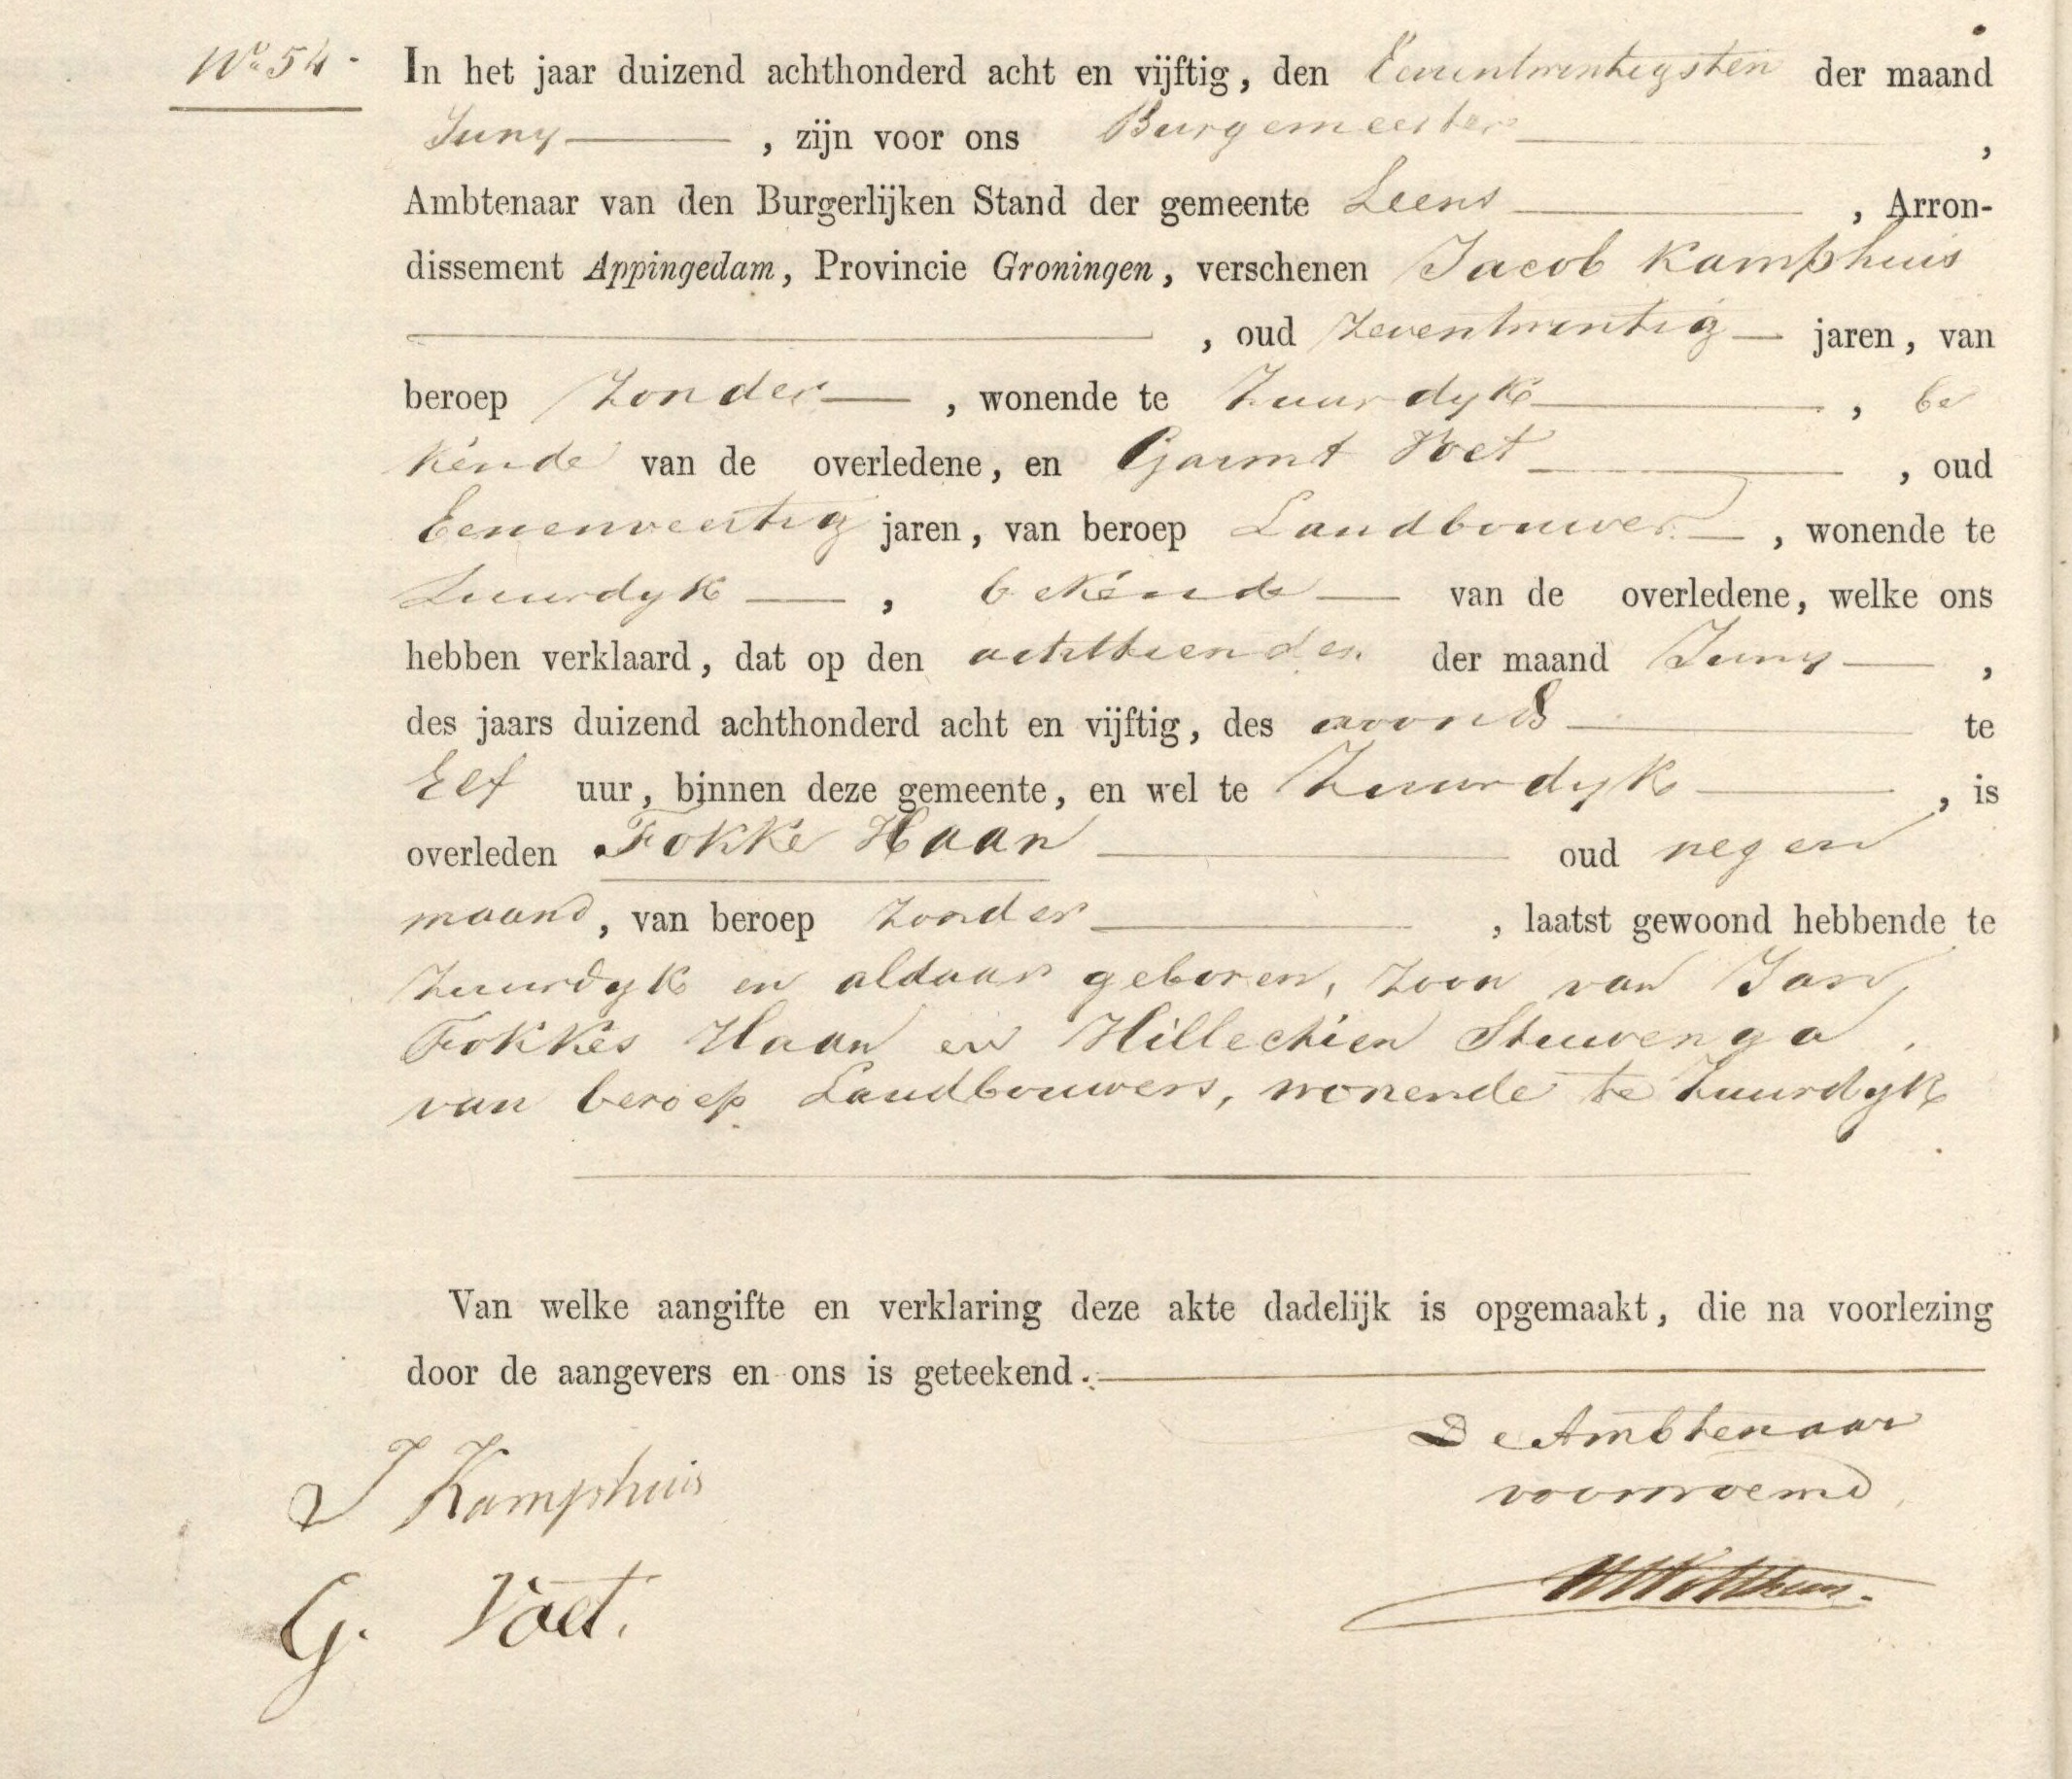 No 54.
In het jaar duizend achthonderd acht en vijftig, den Eenentwintigsten der maand
Juny, zijn voor ons Burgemeester,
Ambtenaar van den Burgerlijken Stand der gemeente Leens, Arron-
dissement Appingedam, Provincie Groningen, verschenen Jacob Kamphuis
, oud Zeventwintig jaren, van
beroep Zonder, wonende te Zuurdyk, be
kende van de overledene, en Garmt Voet, oud
Eenenveertig jaren, van beroep Landbouwer, wonende te
Zuurdyk, bekende van de overledene, welke ons
hebben verklaard, dat op den achttienden der maand Juny,
des jaars duizend achthonderd acht en vijftig, des avonds te
Elf uur, binnen deze gemeente, en wel te Zuurdyk, is
overleden Fokke Haan oud negen
maand, van beroep Zonder, laatst gewoond hebbende te
Zuurdyk en aldaar geboren, Zoon van Jan
Fokkes Haan en Hillechien Stuivenga,
van beroep Landbouwers, wonende te Zuurdyk.
Van welke aangifte en verklaring deze akte dadelijk is opgemaakt, die na voorlezing
door de aangevers en ons is geteekend.
De Ambtenaar
voornoemd
J Kamphuis
G. Voet.